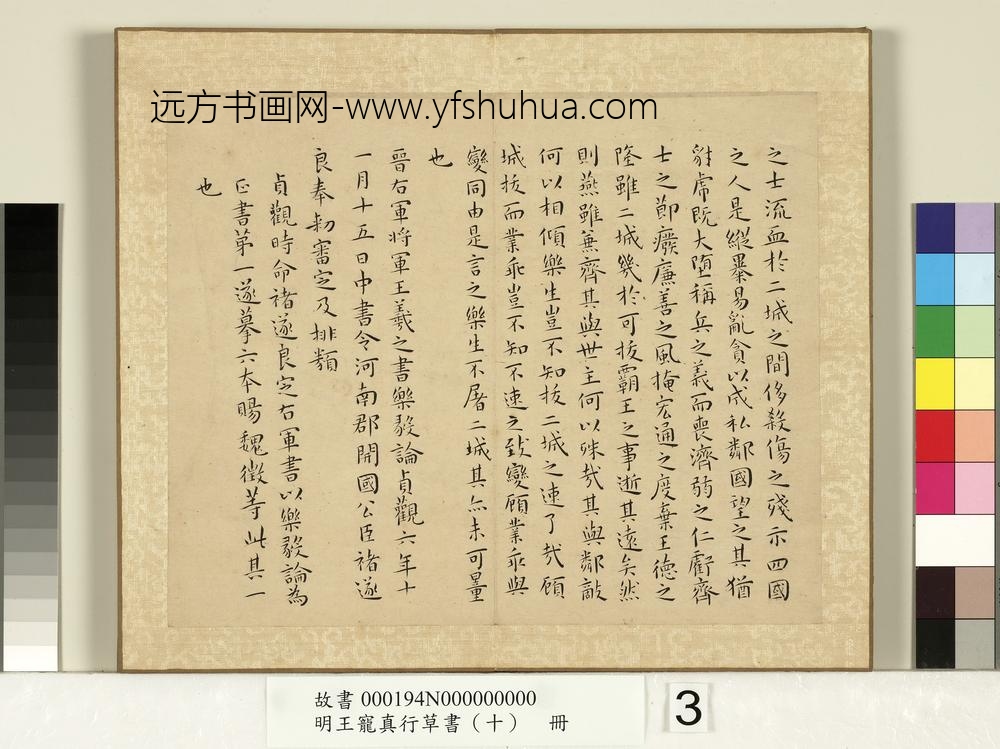 远方书画网-www.yfshuhua.com
之士流血於二城之間侈殺傷之殘示四國
之人是縱暴易亂貪以成私鄰國望之其猶
豺虎既大墮稱兵之義而喪濟弱之仁虧齊
士之節癈廉善之風掩宏通之度棄王德之
隆雖二城幾於可拔霸王之事逝其遠矣然
則燕雖兼齊其與世主何以殊哉其與鄰敵
何以相傾樂生豈不知拔二城之速了哉顧
城拔而業乖豈不知不速之致變顧業乖與
變同由是言之樂生不屠二城其亦未可量
也
晉右軍將軍王羲之書樂毅論貞觀六年十
一月十五日中書令河南郡開國公臣褚遂
良奉勅審定及排類
貞觀時命褚遂良定右軍書以樂毅論為
正書第一遂摹六本賜魏徵等此其一
也
故書 000194N000000000
明王寵真行草書（十） 冊
3